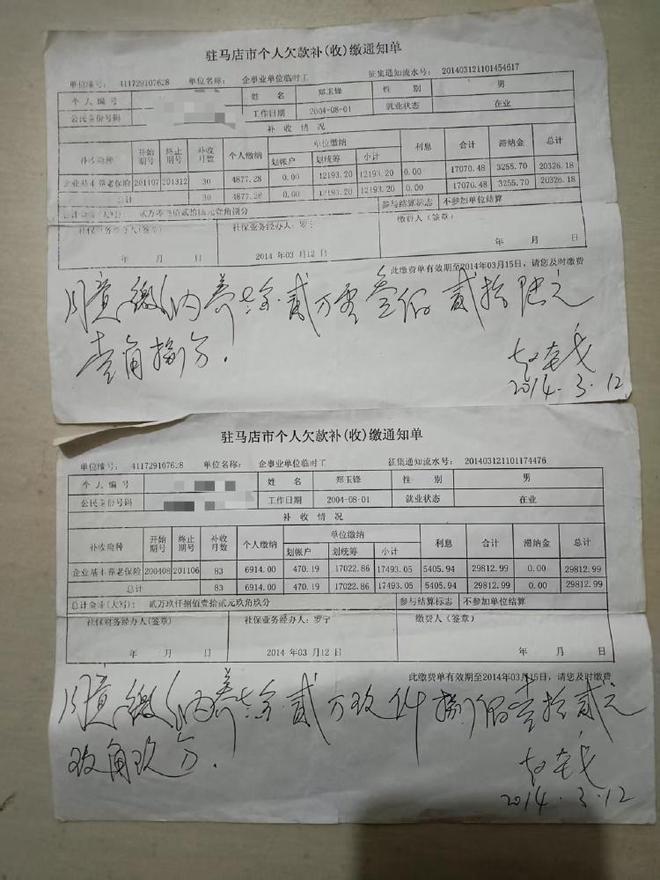 驻马店市个人欠款补(收)缴通知单
单位编号: 411729107628 单位名称: 企事业单位临时工 征集通知流水号: 201403121101454617
个人编号 姓名 郑玉锋 性别 男
公民身份号码 工作日期 2004-08-01 就业状态 在业
补收情况
补收险种 开始期号 终止期号 补收月数 个人缴纳 单位缴纳 利息 合计 滞纳金 总计
划帐户 划统筹 小计
企业基本养老保险 201107 201312 30 4877.28 0.00 12193.20 12193.20 0.00 17070.48 3255.70 20326.18
总计 30 4877.28 0.00 12193.20 12193.20 0.00 17070.48 3255.70 20326.18
总计金额(大写): 贰万零叁佰贰拾陆元壹角捌分 参与结算标志 不参加单位结算
社保财务经办人(签章) 社保业务经办人: 罗宁 缴费人(签章)
年 月 日 2014 年 03 月 12 日 年 月 日
此缴费单有效期至2014年03月15日,请您及时缴费
同意缴纳养老金贰万零叁佰贰拾陆元
壹角捌分.
2014.3.12
驻马店市个人欠款补(收)缴通知单
单位编号: 411729107628 单位名称: 企事业单位临时工 征集通知流水号: 201403121101174476
个人编号 姓名 郑玉锋 性别 男
公民身份号码 工作日期 2004-08-01 就业状态 在业
补收情况
补收险种 开始期号 终止期号 补收月数 个人缴纳 单位缴纳 利息 合计 滞纳金 总计
划帐户 划统筹 小计
企业基本养老保险 200408 201106 83 6914.00 470.19 17022.86 17493.05 5405.94 29812.99 0.00 29812.99
总计 83 6914.00 470.19 17022.86 17493.05 5405.94 29812.99 0.00 29812.99
总计金额(大写): 贰万玖仟捌佰壹拾贰元玖角玖分 参与结算标志 不参加单位结算
社保财务经办人(签章) 社保业务经办人: 罗宁 缴费人(签章)
年 月 日 2014 年 03 月 12 日 年 月 日
此缴费单有效期至2014年03月15日,请您及时缴费
同意缴纳养老金贰万玖仟捌佰壹拾贰元
玖角玖分.
2014.3.12